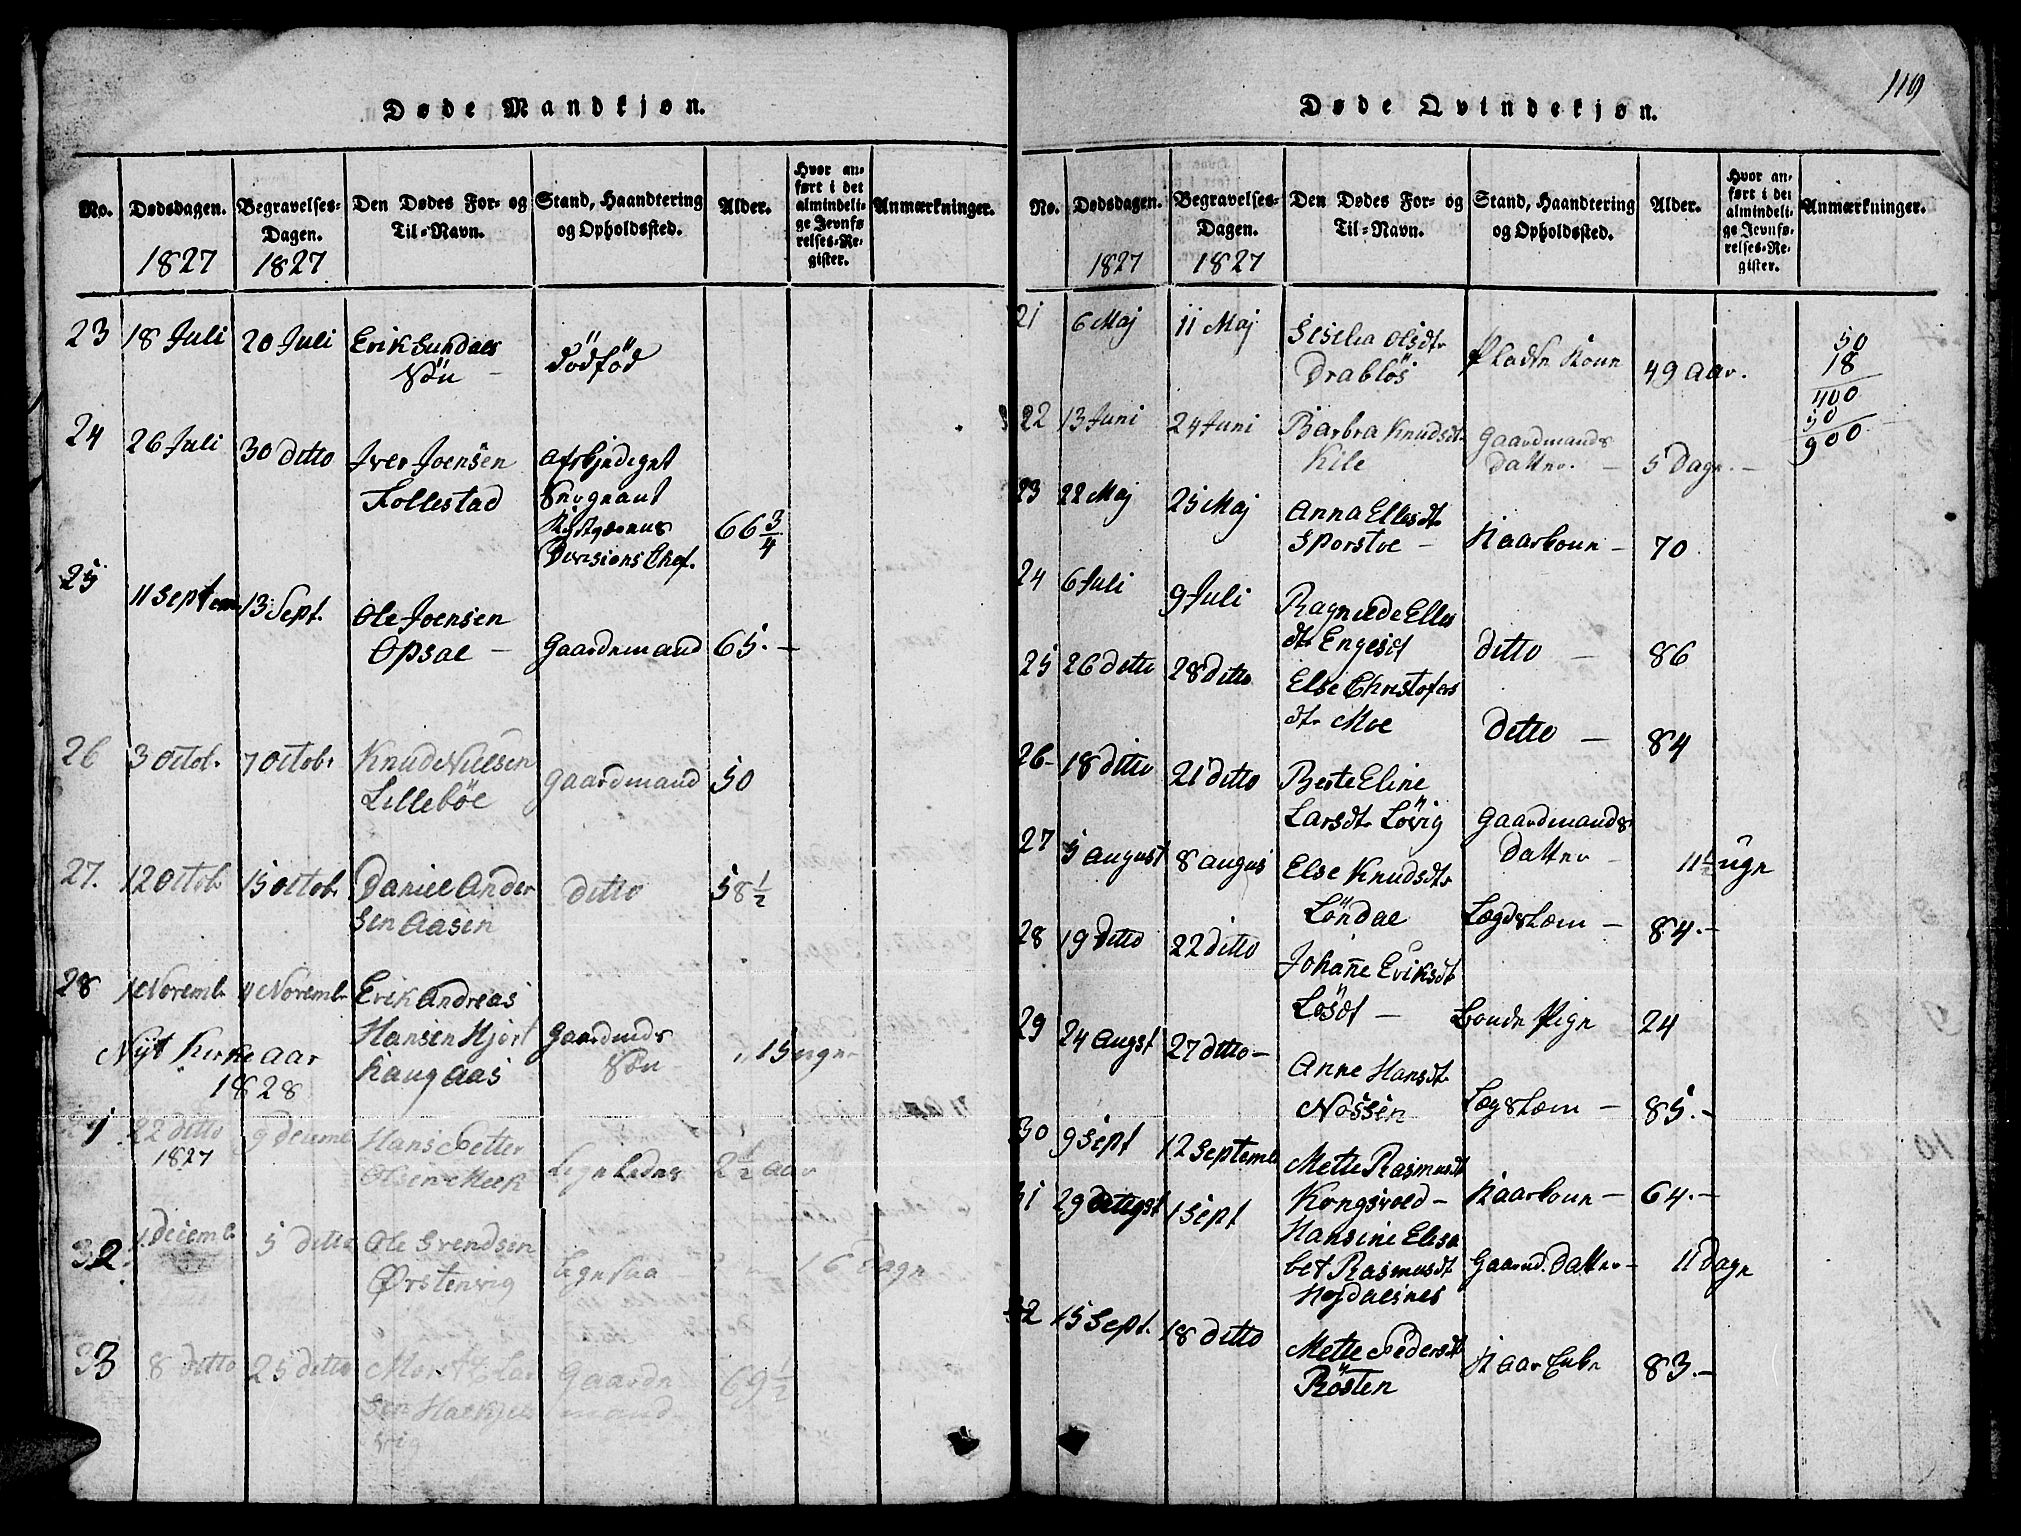 119
Døde Mandkjøn.
No. Dødsdagen. 1827 Begravelses-Dagen. 1827 Den Dødes For- og Til-Navn. Stand, Haandtering og Opholdssted. Alder. Hvor anført i det almindelige Jevnførelses-Register. Anmærkninger.
23 18 Juli 20 Juli Erik Sundals dödföd
Sön -
24 26 Juli 30 ditto Iver Joensen afskjediget
Follestad Sergeant
66 3/4
Divisions Chef.
25 11 Septem 13 Sept. Ole Joensen
Opsal - Gaardemand 65. -
26 3 Octob. 7 Octobr Knud Nielsen Gaardmand 50
Lillebøe
27. 12 Octob. 15 Octob. Daniel Ander ditto 58 1/2
sen Aasen
28 1 Novemb. 4 Novemb. Erik Andreas
Hansen Hjort Gaardmds
Haugaas Sön 15 uger
Nÿt Kirke aar
1828
1 22 ditto 9 Decemb Hans Petter
1827 Olsen Meek 2 1/2 aar
2 1. Decemb. 5 ditto Ole Svendsen
Ørstenvig 16 Dage
3 8 ditto 25 ditto Lar Gaarde 69 1/2
sen mand
vig
Døde Qvindekjøn.
No. Dødsdagen. 1827 Begravelses-Dagen. 1827 Den Dødes For- og Til-Navn. Stand, Haandtering og Opholdssted. Alder. Hvor anført i det almindelige Jevnførelses-Register. Anmærkninger.
21 6 Maj 11 Maj Sisilia Olsdtr
Drablös Pladse Kone 49 aar.
50
18
400
50
900
22 13 Juni 24 Juni Barbra Knudsdt. Gaardmands
Kile Datter. - 5 Dage. -
23 22 Maj 25 Maj Anna Ellesdtr
Sporstöe - Kaarkone - 70
24 6 Juli 9 Juli Ragnilde Elles
dtr Engeset ditto - 86
25 26 ditto 28 ditto Else Christofers
dtr Moe ditto - 84
26 18 ditto 21 ditto Berte Eline
Larsdtr Lövig Gaardmands
Datter - 11 1/2 uge
27 5 August 8 August Else Knudsdtr
Löndal Lægdslem - 84. -
28 19 ditto 22 ditto Johañe Eriksdt
Lösdt - Bonde Pige 24
29 24 Augst 27 ditto - Anne Hansdtr
Nossen Lægslem - 85. -
30 9 Sept 12 Septemb Mette Rasmusdt
Kongsvold - Kaarkone - 64. -
31 29 1 Sept Hansine Elisa
bet Rasmusdt Gaamd. Datter - 11 Dage
32 15 Sept. 18 ditto Mette Pedersdt
Rösten 83. -